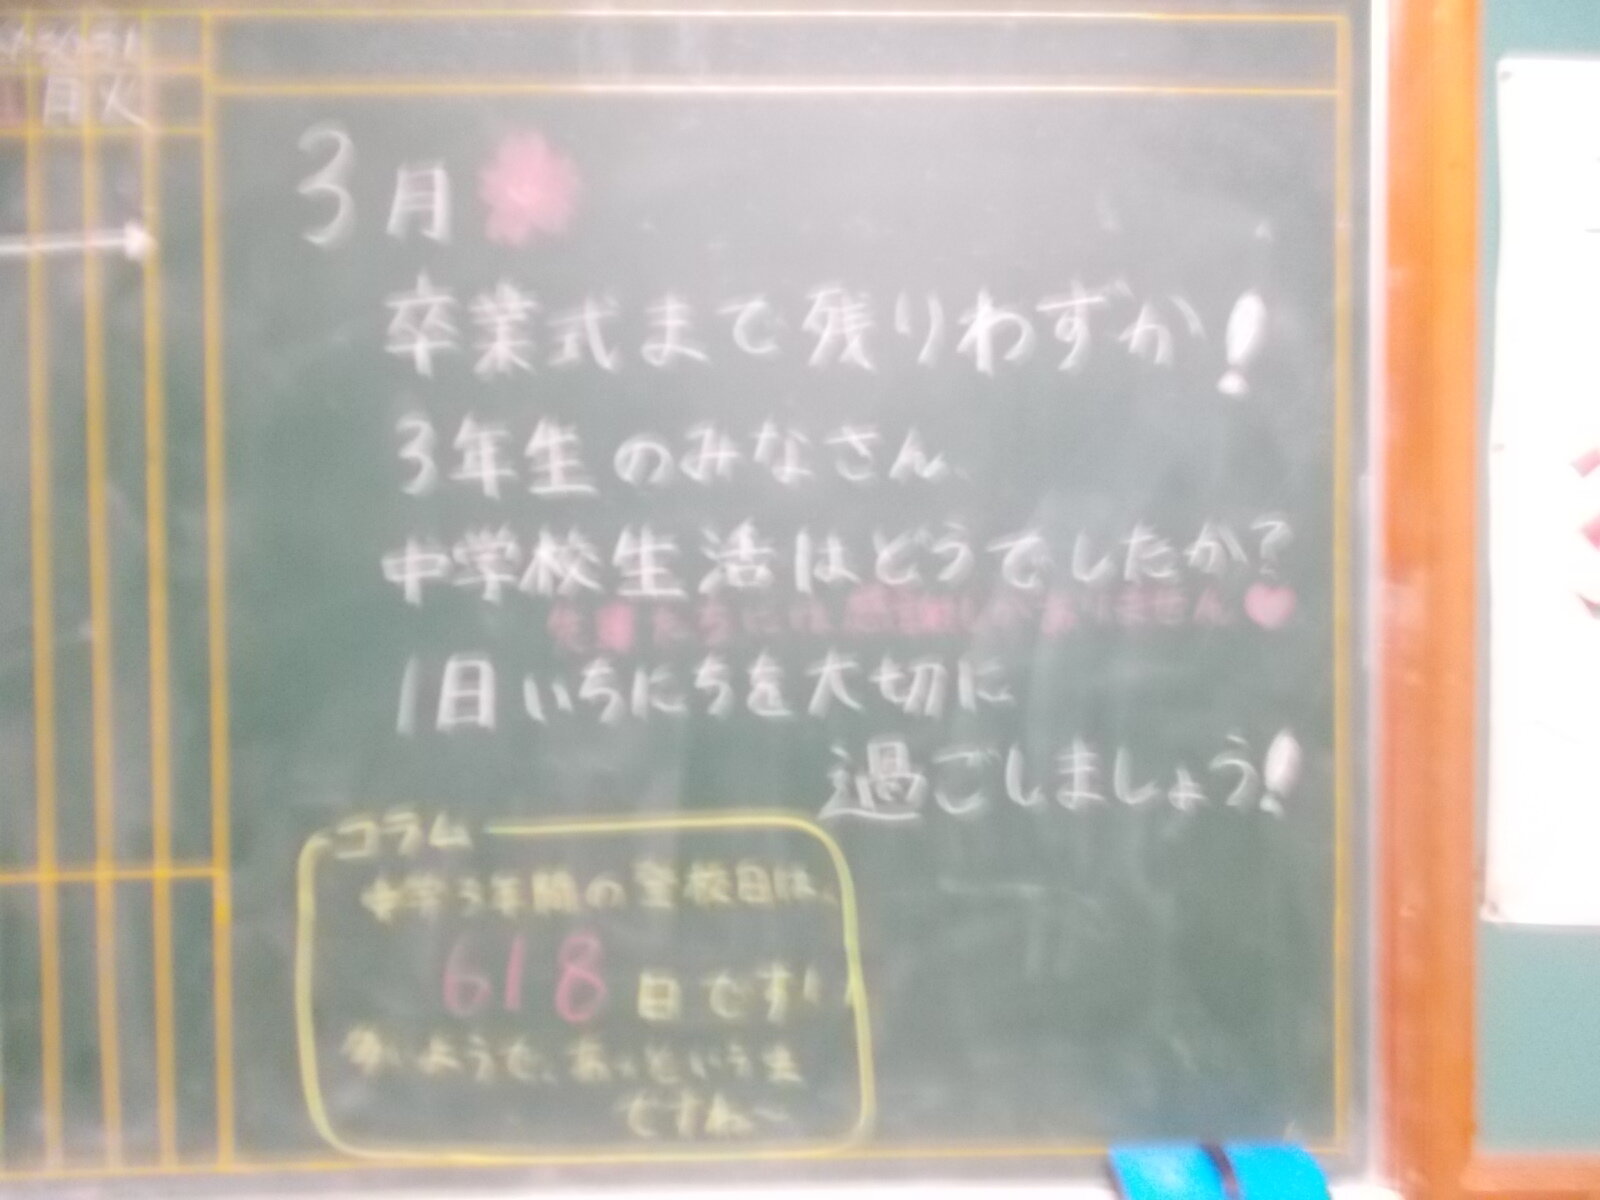 30 31
月 火
3月
卒業式まで残りわずか!
3年生のみなさん、
中学校生活はどうでしたか?
先輩たちには感謝しかありません♥
1日いちにちを大切に
過ごしましょう!
コラム
中学3年間の登校日は、
618日です!!
長いようで、あっという間
ですね〜